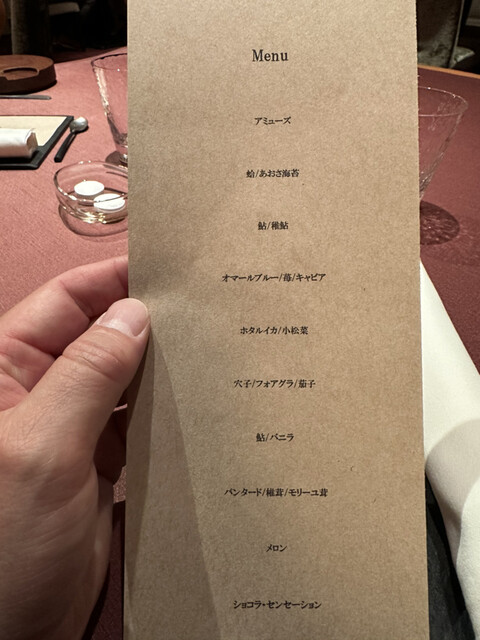 Menu
アミューズ
蛤/あおさ海苔
鮎/稚鮎
オマールブルー/苺/キャビア
ホタルイカ/小松菜
穴子/フォアグラ/茄子
鮎/バニラ
パンタード/椎茸/モリーユ茸
メロン
ショコラ・センセーション